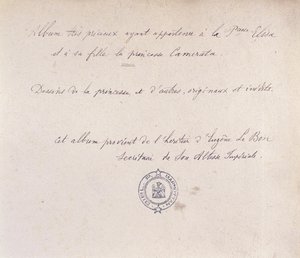 Album très précieux ayant appartenu à la Psse Elisa
et à sa fille la princesse Camerata.
Dessins de la princesse, et d'autres, originaux et inédits.
Cet album provient de l'héritier d'Eugène Le Bon
Secrétaire de Son Altesse Impériale.